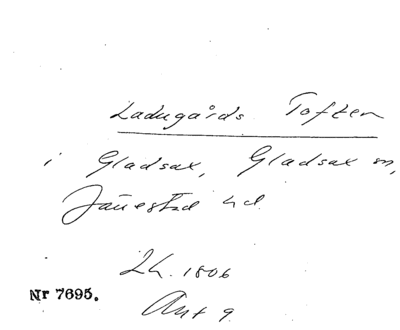 Ladugårds Toften
i Gladsax, Gladsax sn,
Järrestad hd.
Lh. 1806
Nr 7695.
Akt 9